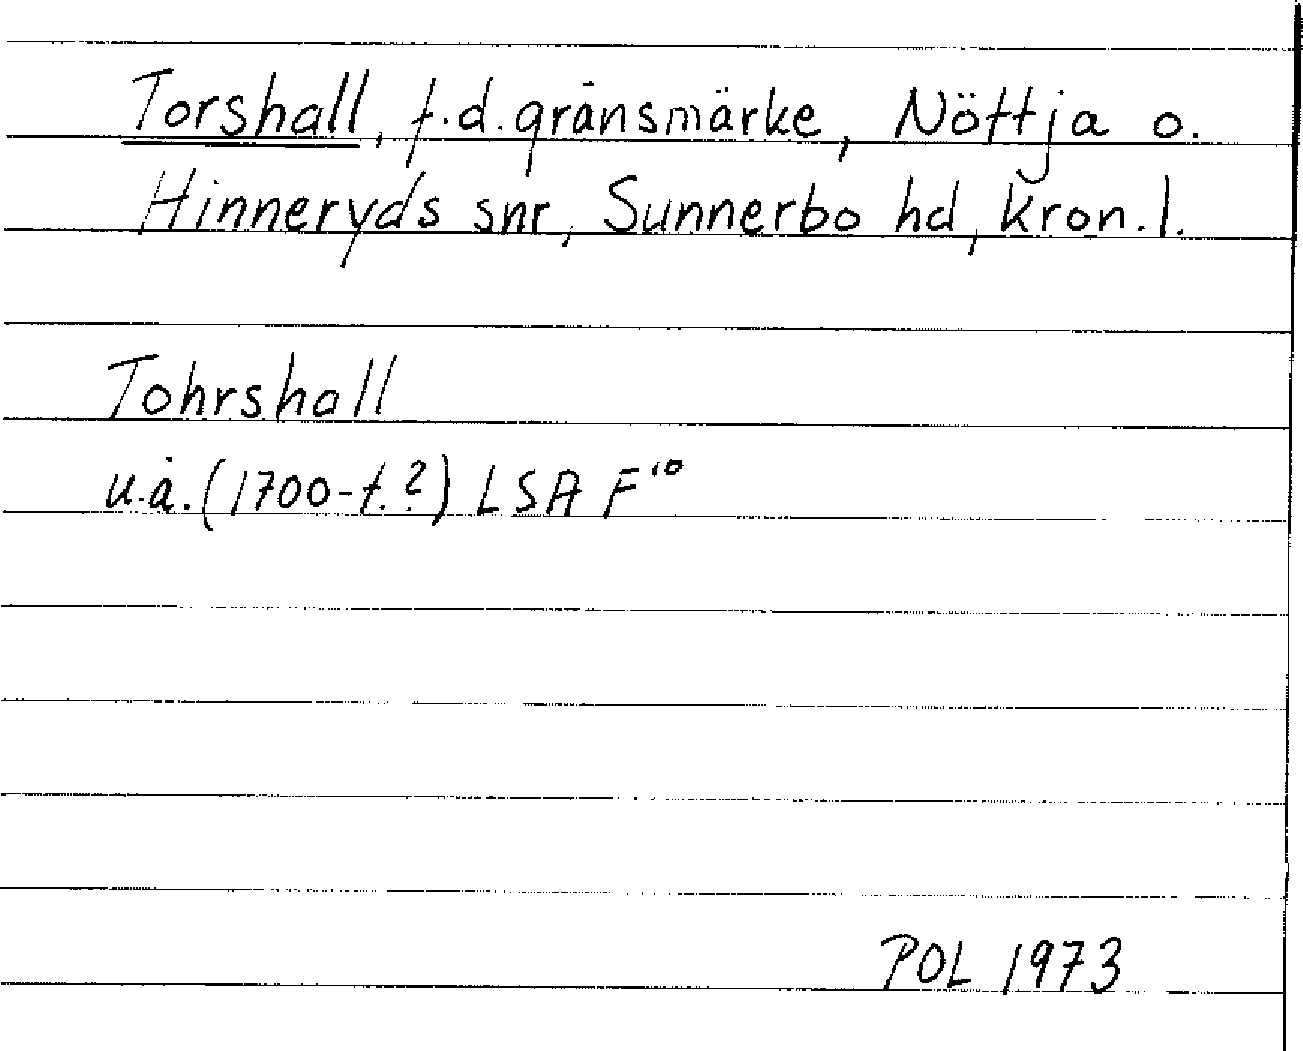 Torshall, f.d. gränsmärke, Nöttja o.
Hinneryds snr, Sunnerbo hd, Kron. l.
Tohrshall
u.å. (1700-t.?) LSA F¹⁰
POL 1973